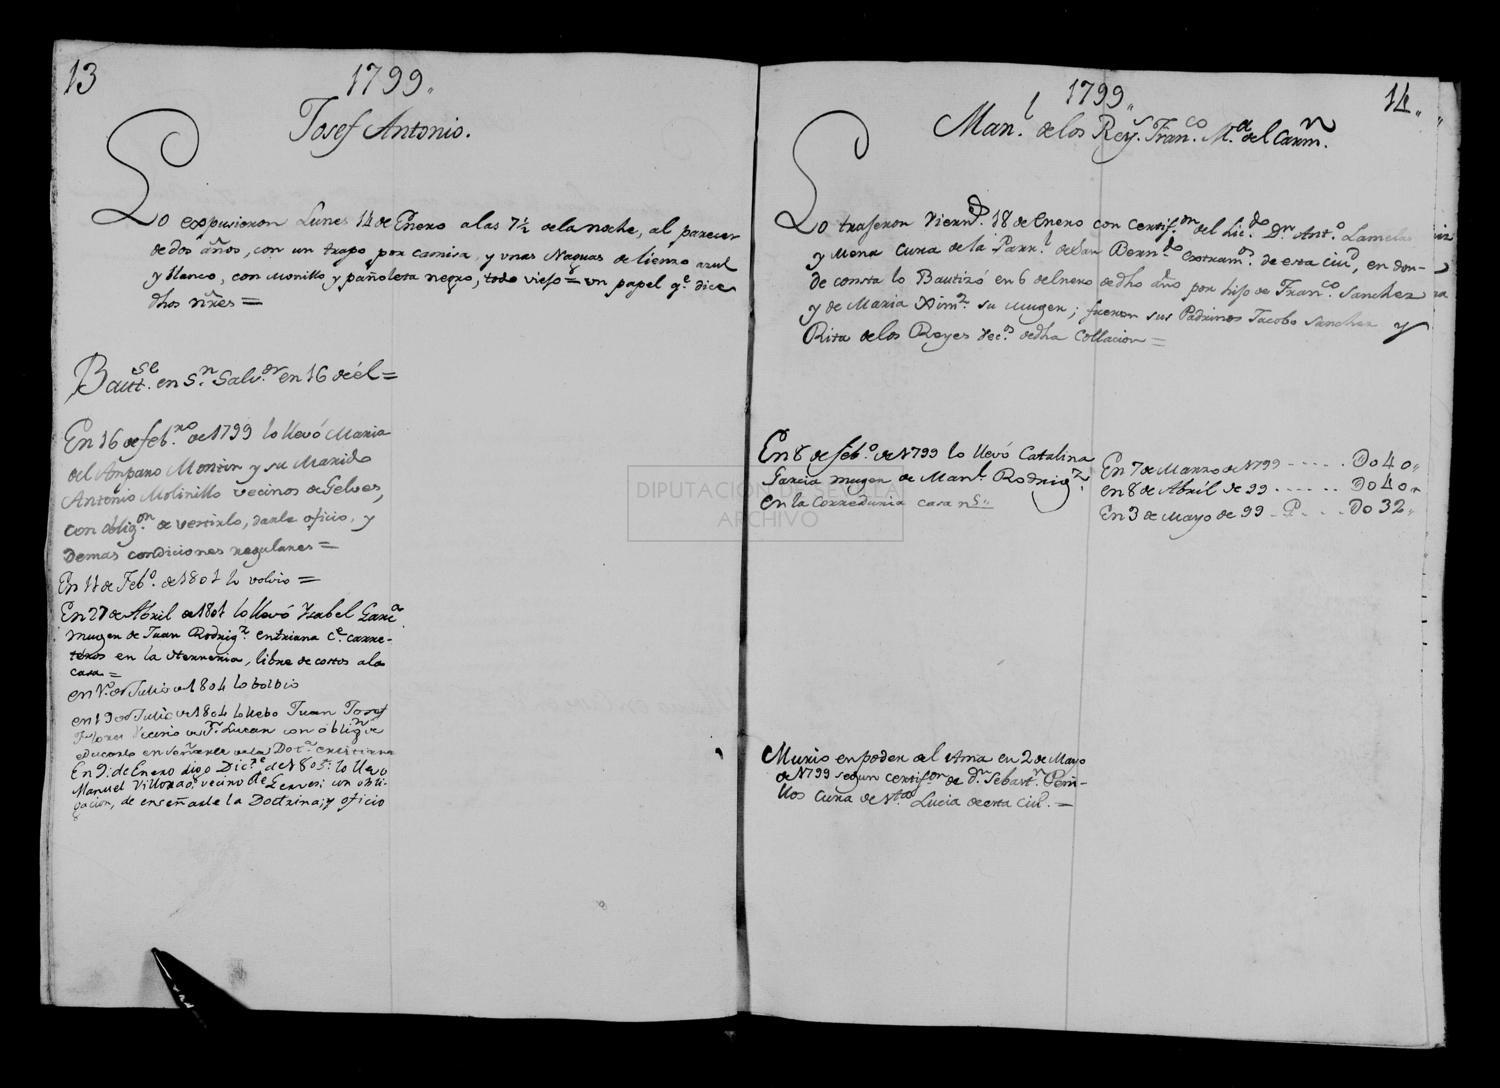 13
1799„
Josef Antonio.
Lo expusieron Lunes 14 de Enero a las 7½ de la noche, al parecer
de dos años, con un trapo por camisa, y unas Naguas de lienzo azul
y blanco, con Monillo y pañoleta negro, todo viejo = un papel qe. dice
dhos nres =
Bautse. en Sn. Salvor. en 16 de él =
En 16 de febro. de 1799 lo llevó Maria
del Amparo Montin y su Marido
Antonio Molinillo vecinos de Gelves,
con obligon. de vestirlo, darle oficio, y
Demas condiciones regulares =
En 11 de Febo. de 1801 lo volvio =
En 27 de Abril de 1801 lo llevó Ysabel Garca.
muger de Juan Rodrigz. en triana Ce. carre-
teros en la Herreria, libre de costos a la
casa =
en 1º. de Julio de 1804 lo bolbio
en 19 de Julio de 1804 lo llebo Juan Josef
Flores Vecino de Sn. Lucar con obligon. de
educarlo enseñarle la Dota. cristiana
En 9: de Enero digo Dice. de 1805: lo llevo
Manuel Villorao, vecino de Gerves: con obli-
gacion, de enseñarle la Doctrina; y oficio
1799„
14„
Manl. de los Reys. Franco. Ma. del Carmn.
Lo trajeron Viernd. 18 de Enero con certifon. del Licdo. Dn. Anto. Lamelas
y Mena Cura de la Parrl. de San Berndo. extramos. de esta ciud, en don-
de consta lo Bautizó en 6 de enero de dho año por hijo de Franco. Sanchez
y de Maria Ximz. su muger; fueron sus Padrinos Jacobo Sanchez y
Rita de los Reyes Vecs. de dha Collacion =
En 8 de febo. de 1799 lo llevó Catalina
Garcia muger de Manl. Rodrigz.
en la Correduria casa
En 7 de Marzo de 1799 - - - - - Do 40„
en 8 de Abril de 99 - - - - - - Do 40„
En 3 de Mayo de 99 - P. - - - Do 32„
DIPUTACION DE SEVILLA
ARCHIVO
Murio en poder del Ama en 2 de Mayo
de 1799 segun certifon. de Dn. Sebastn. Peni-
llos Cura de Sta. Lucia de esta ciud. =